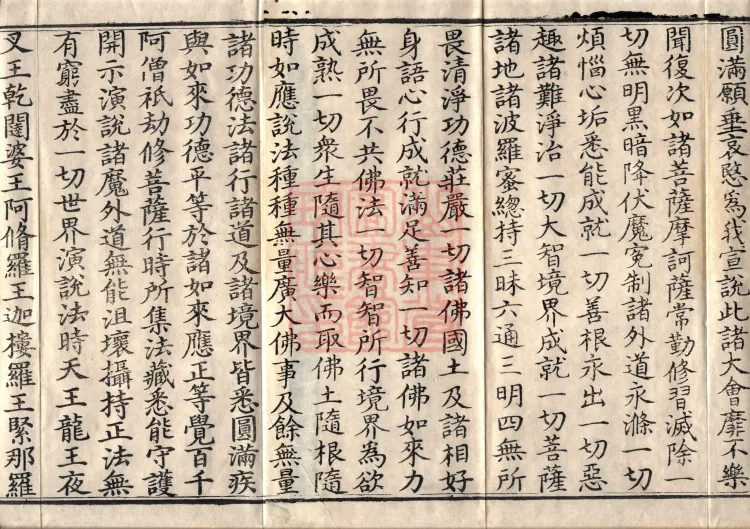 圓滿願垂哀愍為我宣說此諸大會靡不樂
聞復次如諸菩薩摩訶薩常勤修習滅除一
切無明黑暗降伏魔冤制諸外道永滌一切
煩惱心垢悉能成就一切善根永出一切惡
趣諸難淨治一切大智境界成就一切菩薩
諸地諸波羅蜜總持三昧六通三明四無所
畏清淨功德莊嚴一切諸佛國土及諸相好
身語心行成就滿足善知一切諸佛如來力
無所畏不共佛法一切智智所行境界為欲
成熟一切衆生隨其心樂而取佛土隨根隨
時如應說法種種無量廣大佛事及餘無量
諸功德法諸行諸道及諸境界皆悉圓滿疾
與如來功德平等於諸如來應正等覺百千
阿僧祇劫修菩薩行時所集法藏悉能守護
開示演說諸魔外道無能沮壞攝持正法無
有窮盡於一切世界演說法時天王龍王夜
叉王乾闥婆王阿脩羅王迦樓羅王緊那羅